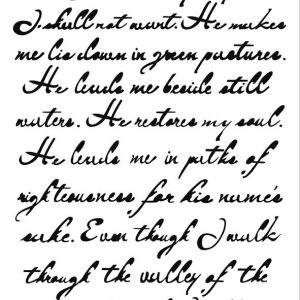 I shall not want. He makes
me lie down in green pastures.
He leads me beside still
waters. He restores my soul.
He leads me in paths of
righteousness for his name's
sake. Even though I walk
through the valley of the